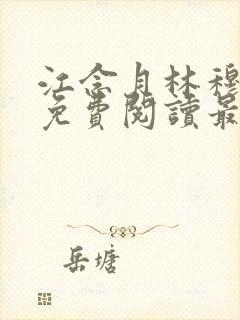 江念月林穆
免費閱讀最
岳塘